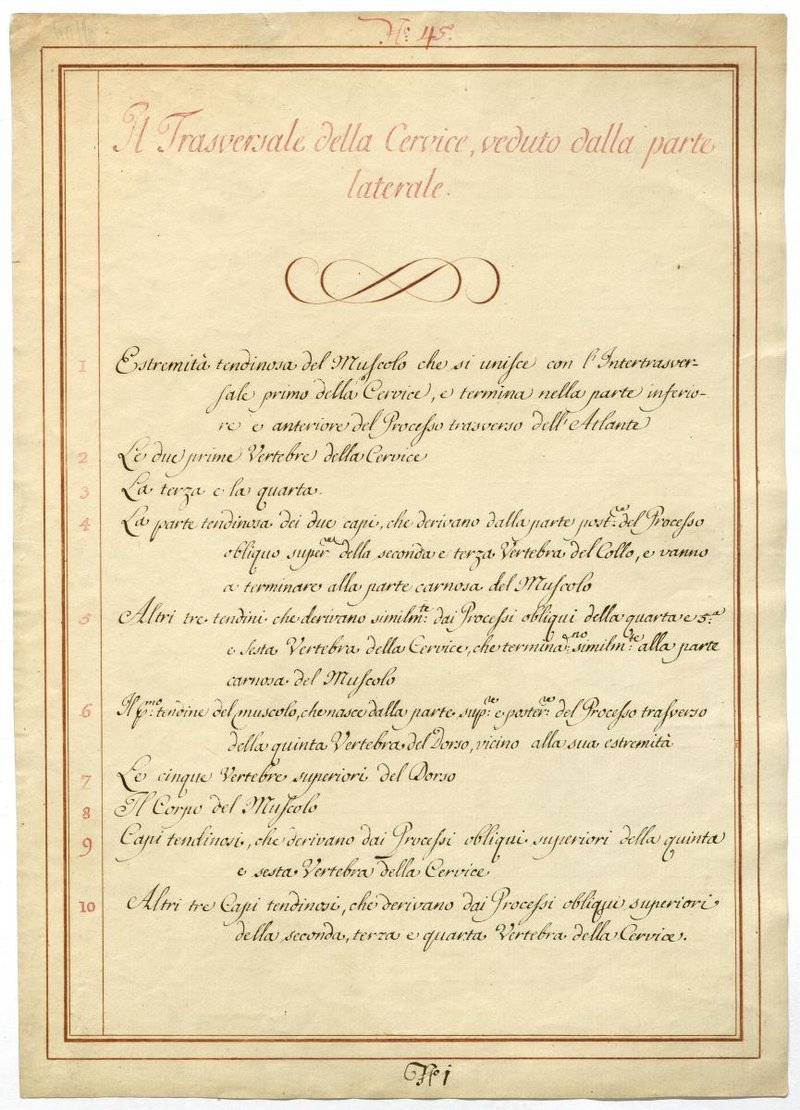 N.º 45.
Il Trasversale della Cervice, veduto dalla parte
laterale.
1 Estremità tendinosa del Muscolo che si unisce con l'Intertrasver-
sale primo della Cervice, e termina nella parte inferio-
re e anteriore del Processo trasverso dell'Atlante
2 Le due prime Vertebre della Cervice
3 La terza e la quarta.
4 La parte tendinosa dei due capi, che derivano dalla parte post.re del Processo
obliquo super.re della seconda e terza Vertebra del Collo, e vanno
a terminare alla parte carnosa del Muscolo
5 Altri tre tendini che derivano similm.te dai Processi obliqui della quarta e 5.a
e sesta Vertebra della Cervice, che termina.no similm.te alla parte
carnosa del Muscolo
6 Il p.mo tendine del muscolo, che nasce dalla parte sup.re e poster.re del Processo trasverso
della quinta Vertebra del Dorso, vicino alla sua estremità
7 Le cinque Vertebre superiori del Dorso
8 Il Corpo del Muscolo
9 Capi tendinosi, che derivano dai Processi obliqui superiori della quinta
e sesta Vertebra della Cervice
10 Altri tre Capi tendinosi, che derivano dai Processi obliqui superiori
della seconda, terza e quarta Vertebra della Cervice.
Nº 1